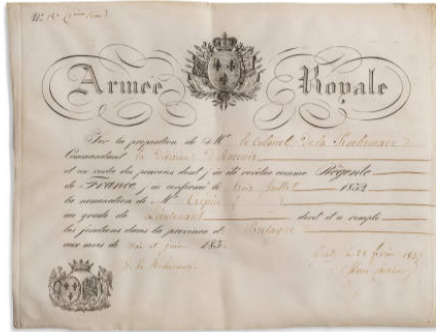 Armée Royale
Sur la proposition de Mr le Colonel de la
Commandant la division d'Ancenis
et en vertu des pouvoirs dont j'ai été revêtue comme Régente
de France, j'ai confirmé le trois juillet 1832
la nomination de Mr Crépin
au grade de Lieutenant dont il a rempli
les fonctions dans la province de Bretagne
aux mois de mai et juin 183
de la
Gratz le 28 février 1837
Marie Caroline